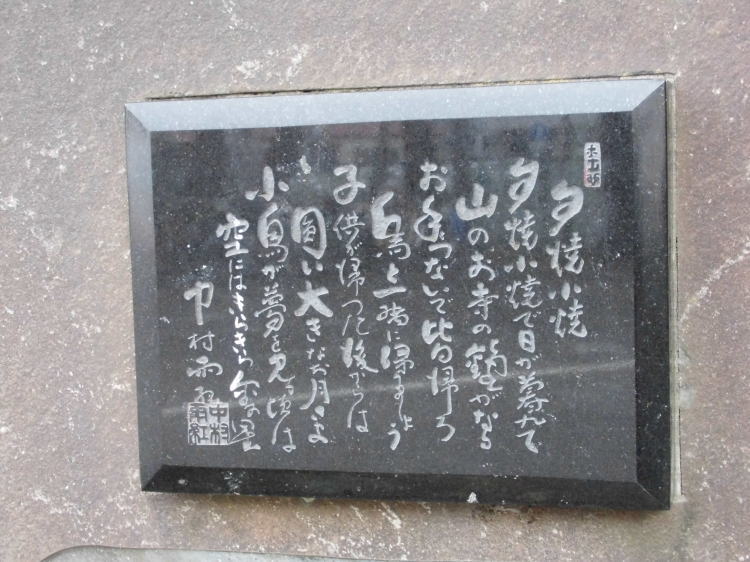 夕焼小焼
夕焼小焼で日が暮れて
山のお寺の鐘がなる
お手々つないで皆帰ろ
烏と一緒に帰りましょう
子供が帰った後からは
円い大きなお月さま
小鳥が夢を見る頃は
空にはきらきら金の星
中村雨紅
中村
雨紅